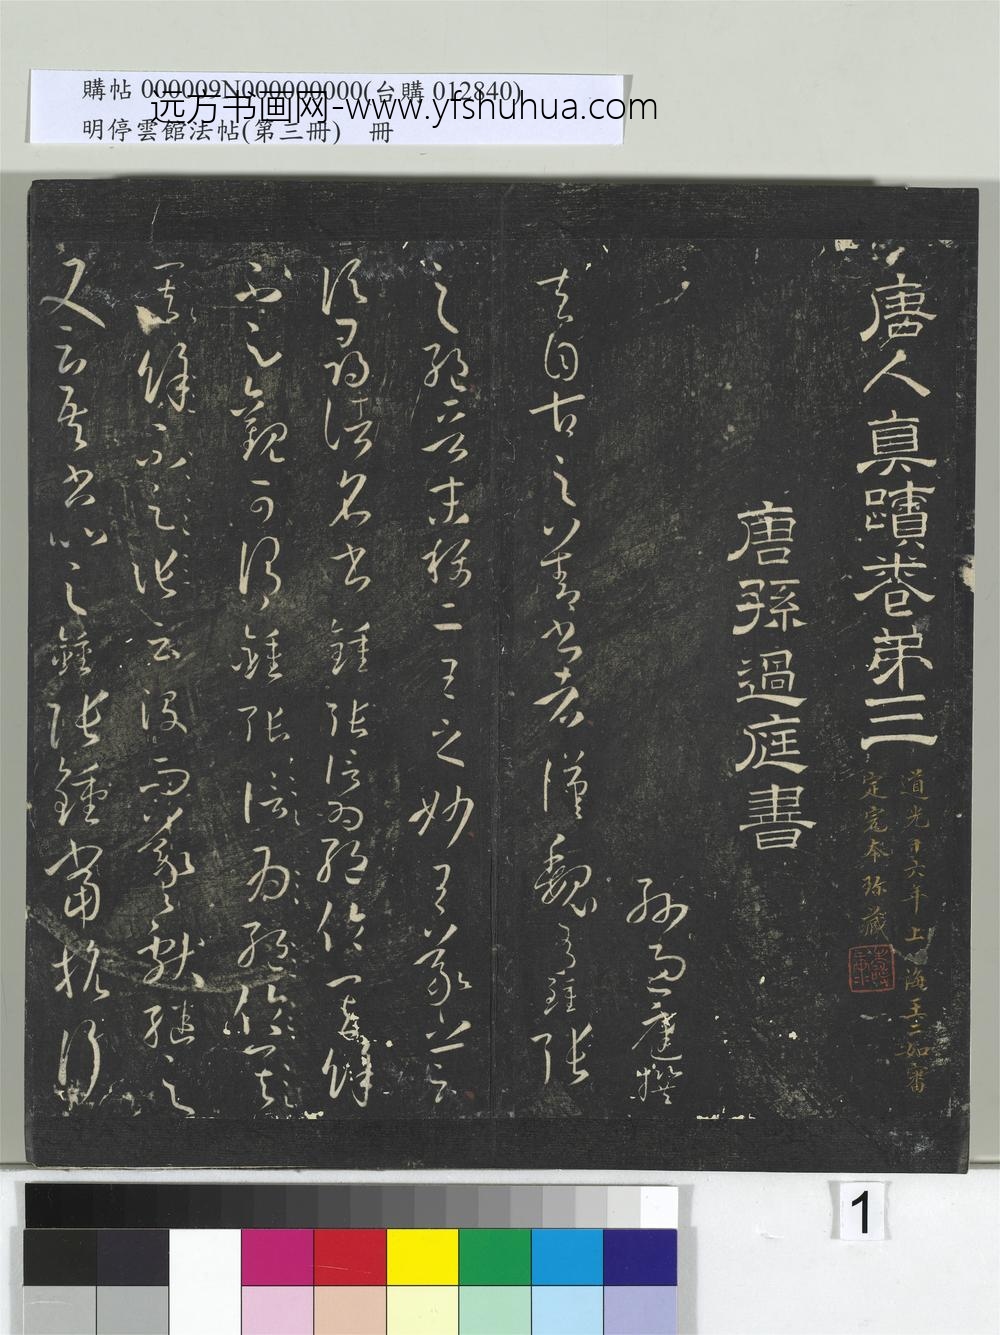 購帖 000009N000000000(台購 012840)
远方书画网-www.yfshuhua.com
明停雲館法帖(第三冊) 冊
唐人真蹟卷第三
道光十六年上海王二如審
定完本珍藏
唐孫過庭書
孫過庭撰
夫自古之善書者漢魏有鍾張
之絕晉末稱二王之妙王羲之云
頃尋諸名書鍾張信為絕倫其餘
不足觀可謂鍾張信為絕倫其
餘不足觀云沒而羲獻繼之
又云吾書比之鍾張鍾當抗行
1